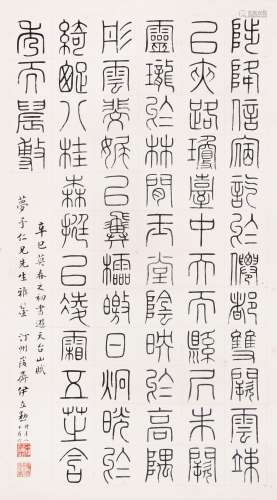 陟降信宿訖於僊都雙闕雲竦
以夾路瓊臺中天而縣居朱闕
靈瓏於林間玉堂陰映於高隅
彤雲斐亹以翼櫺皦日炯晄於
綺疏八桂森挺以凌霜五芝含
秀而晨敷
辛巳莫春之初書遊天台山賦
夢予仁兄先生雅鑒 汀州峻齋伊立勳